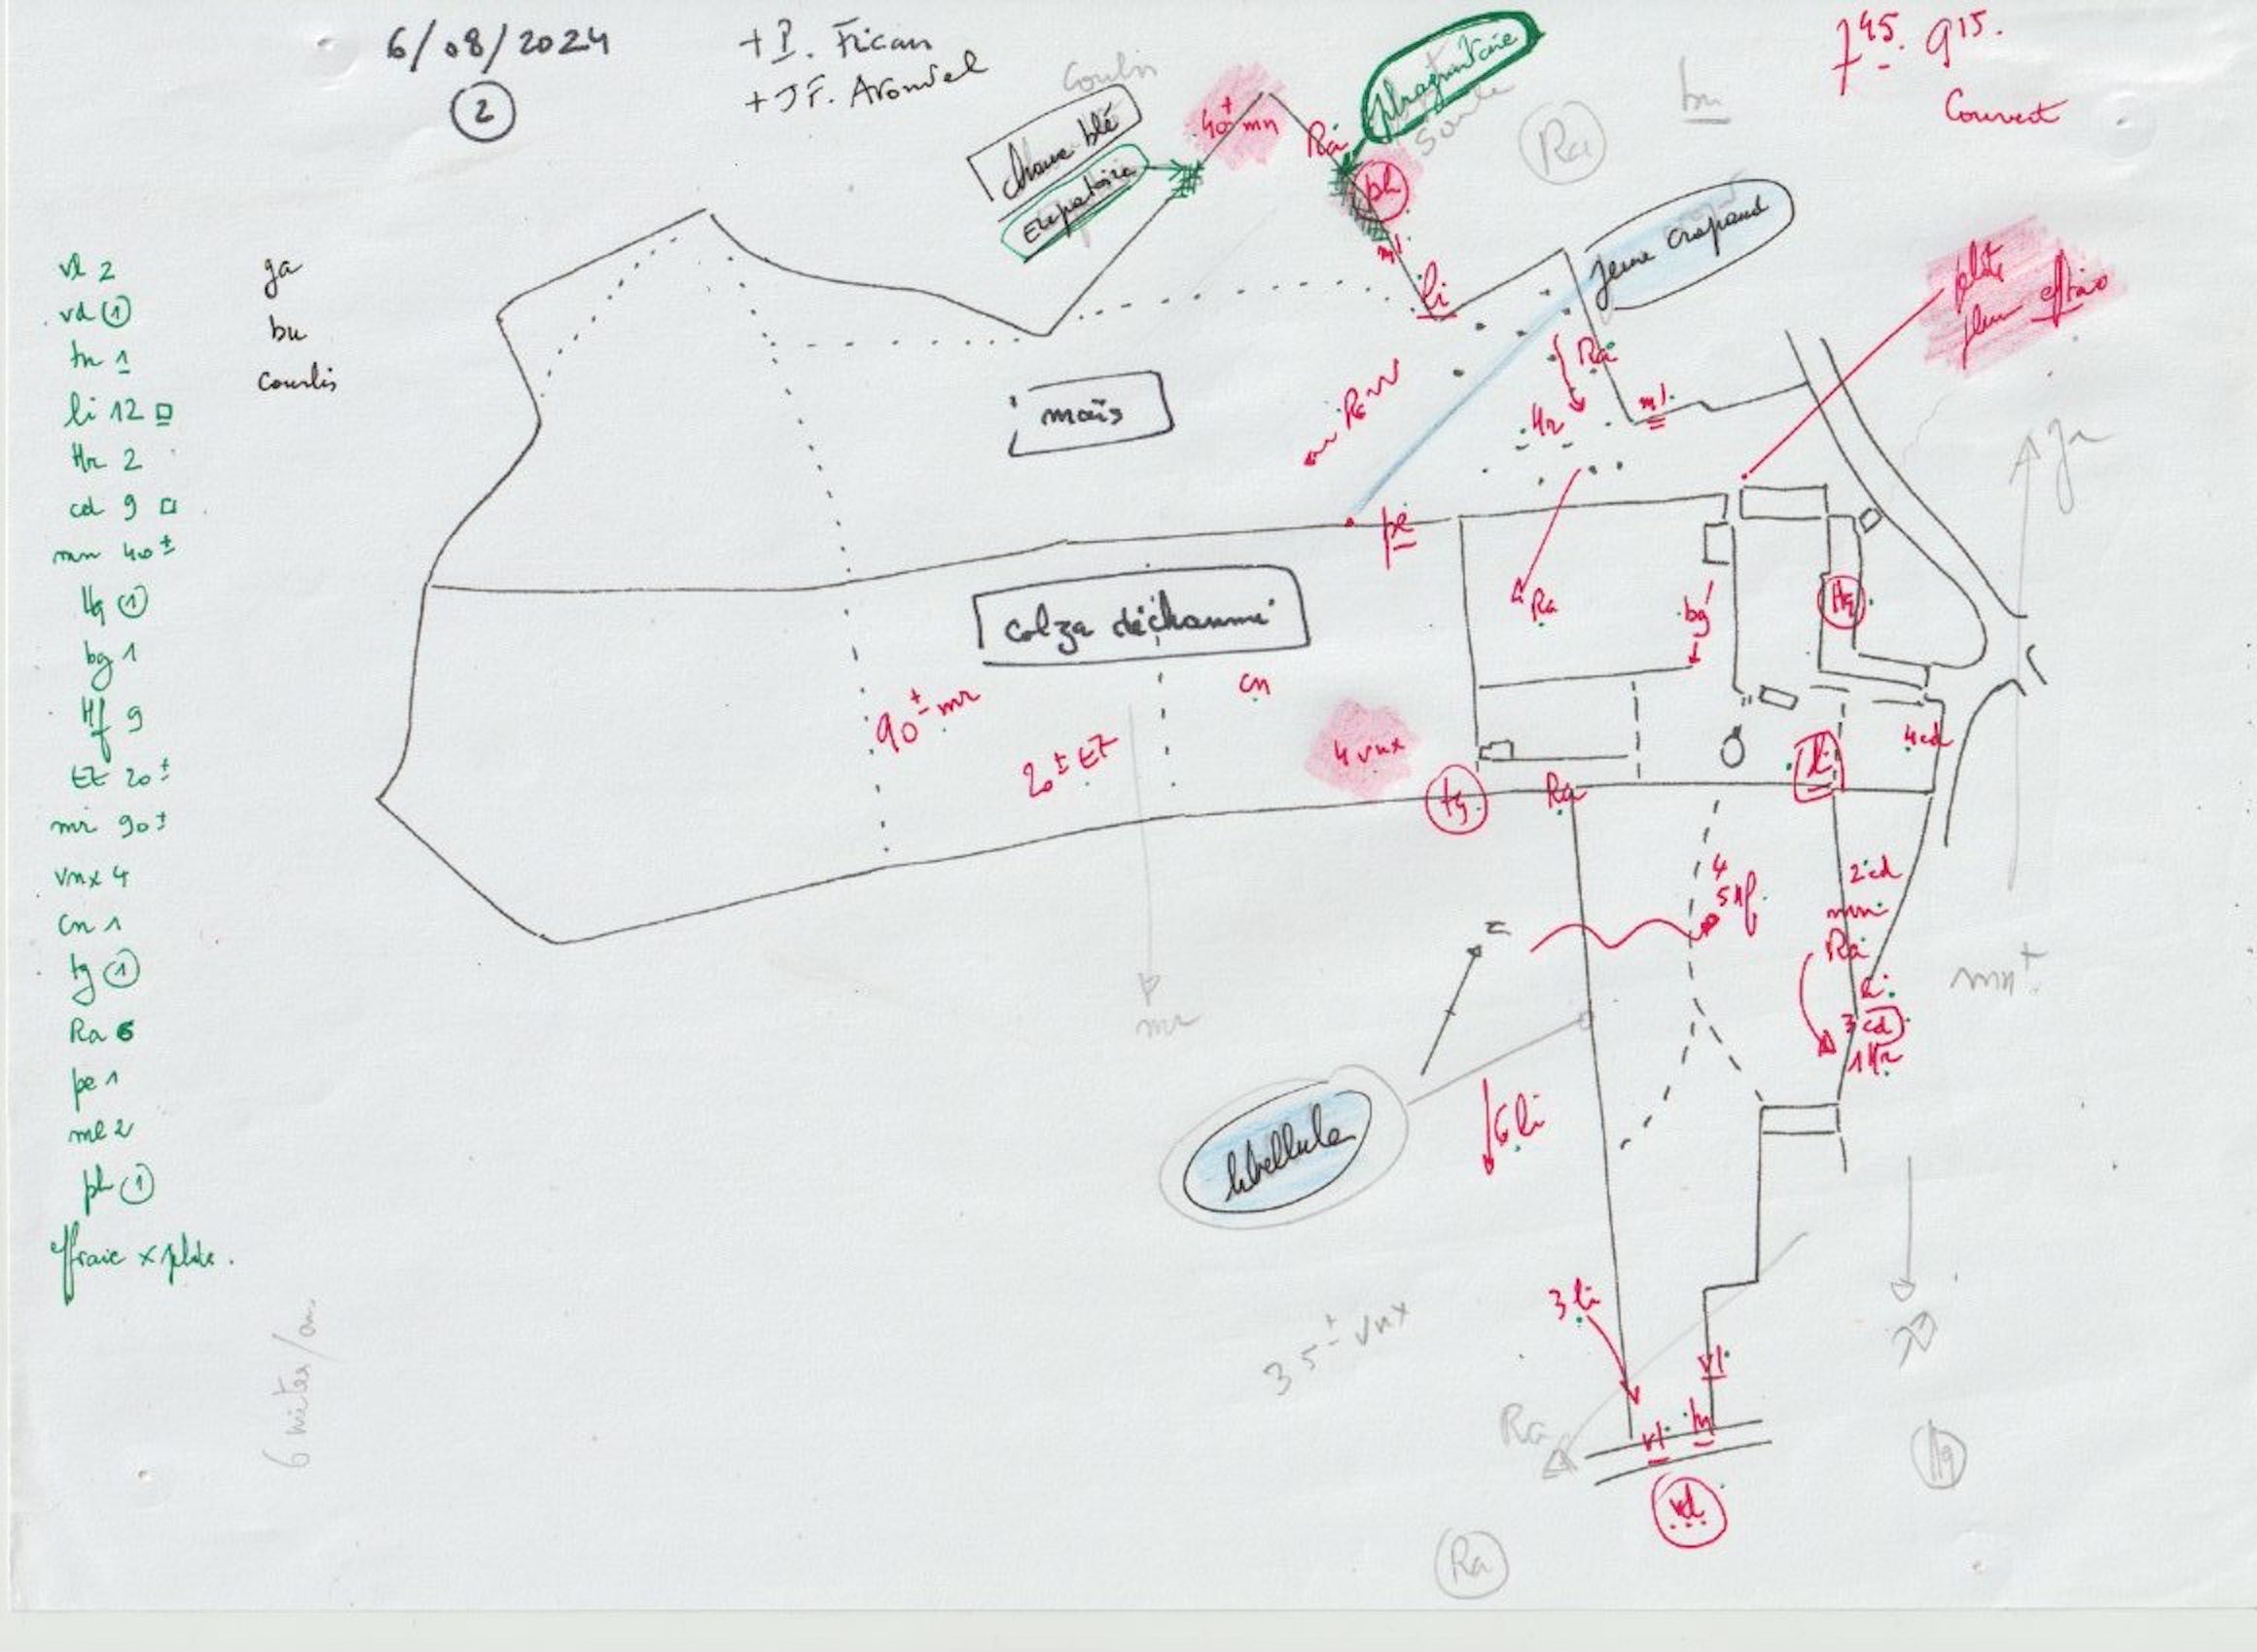 6/08/2024
②
+ P. Fican
+ JF. Arondel
7 45. 9 15.
Couvert
Coulis
chaume blé
Eupatoire
40± mn
Ra
phragmitaie
ph
ml
li
Ra
bu
jeune crapaud
plte
plum effraie
vl 2
vd ①
tn 1
li 12 □
Hr 2
cd 9 □
mn 40±
Hq ①
bg 1
Hf 9
EZ 20±
mr 90±
vnx 4
cn 1
tg ①
Ra 6
pe 1
ml 2
ph ①
effraie x plte.
ga
bu
courlis
maïs
Ra
Hr
ml
Ra
pe
ga
colza déchaumé
Ra
bg
Hq
cn
90± mr
20± EZ
4 vnx
tg
Ra
li
4cd
4
5 Hf
2 cd
mn
Ra
li
3 cd
1 Hr
mn+
mr
libellule
6 li
3 li
35± vnx
6 mites/an
Ra
vl
vl
tn
vd
Hq
Ra